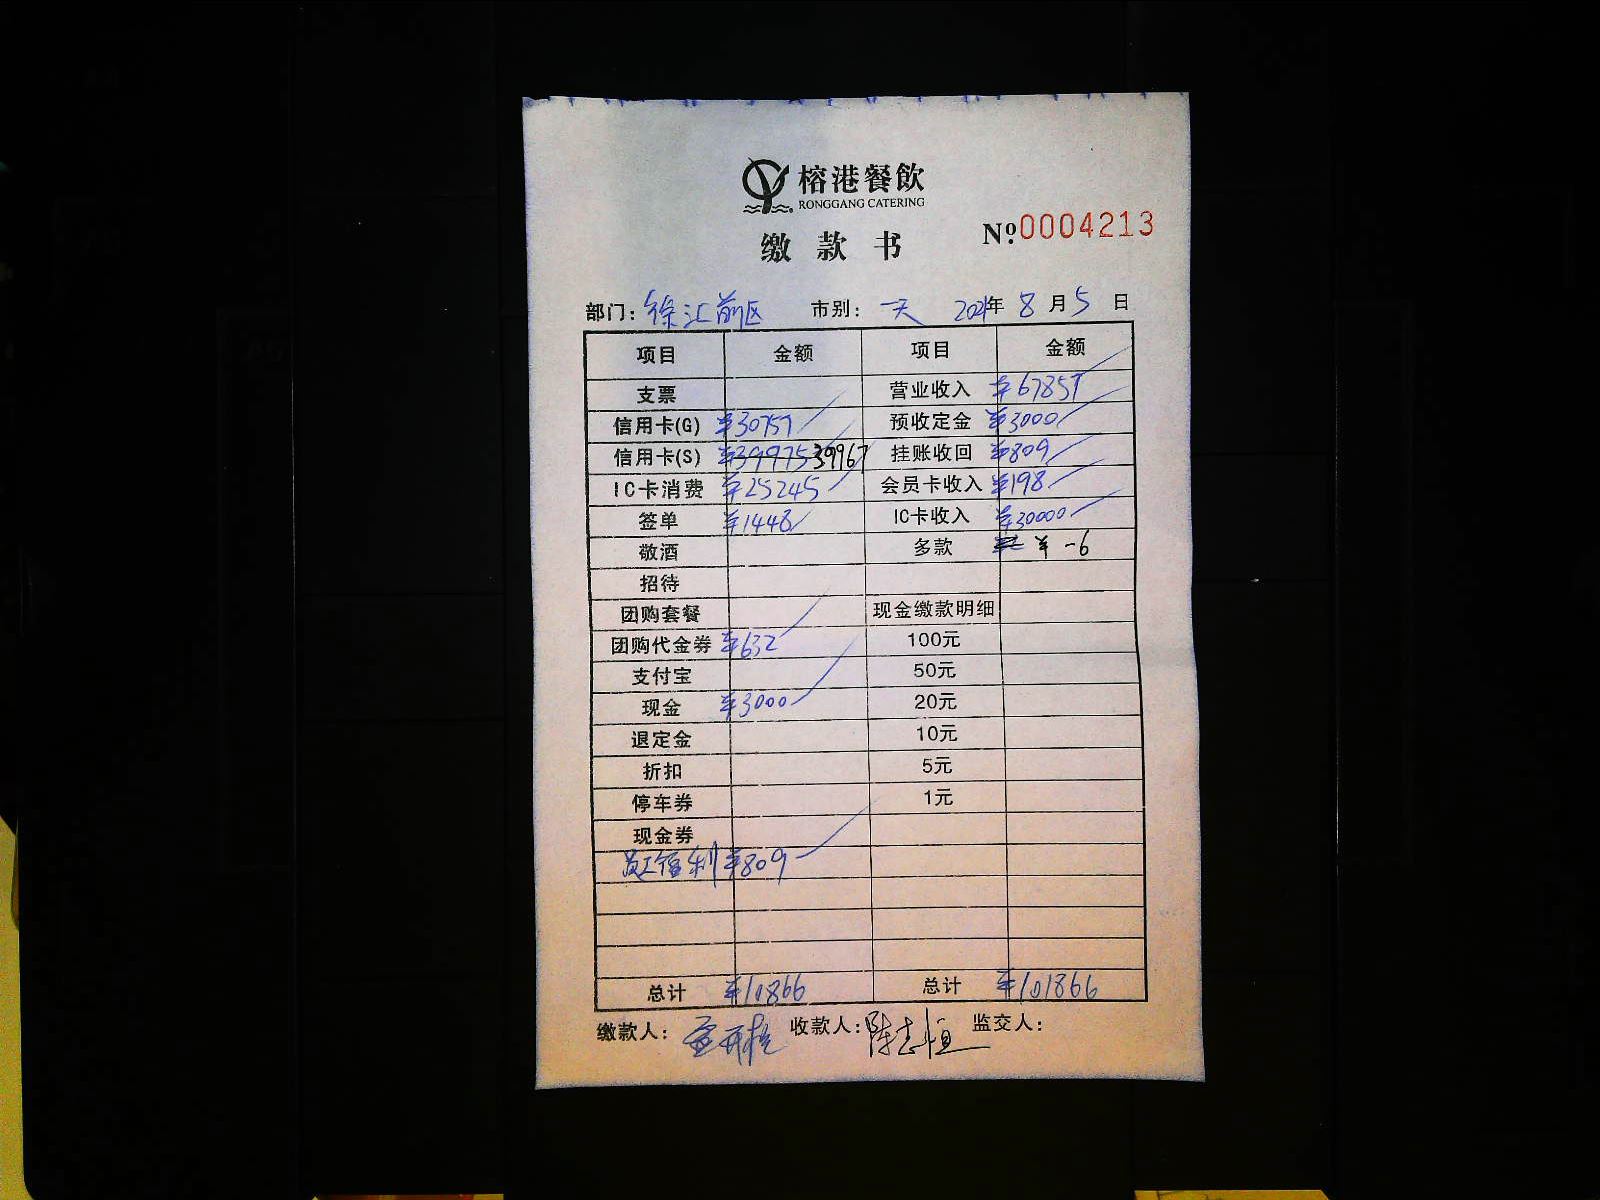 榕港餐飲
RONGGANG CATERING
缴款书
Nº 0004213
部门: 徐汇前区 市别: 一天 2021年 8月 5日
项目 金额 项目 金额
支票 营业收入 ¥67857
信用卡(G) ¥30757 预收定金 ¥3000
信用卡(S) ¥39975 39967 挂账收回 ¥809
IC卡消费 ¥25245 会员卡收入 ¥198
签单 ¥1448 IC卡收入 ¥30000
敬酒 多款 ¥ -6
招待
团购套餐 现金缴款明细
团购代金券 ¥632 100元
支付宝 50元
现金 ¥3000 20元
退定金 10元
折扣 5元
停车券 1元
现金券
员工福利 ¥809
总计 ¥101866 总计 ¥101866
缴款人: 收款人: 陈志恒 监交人: